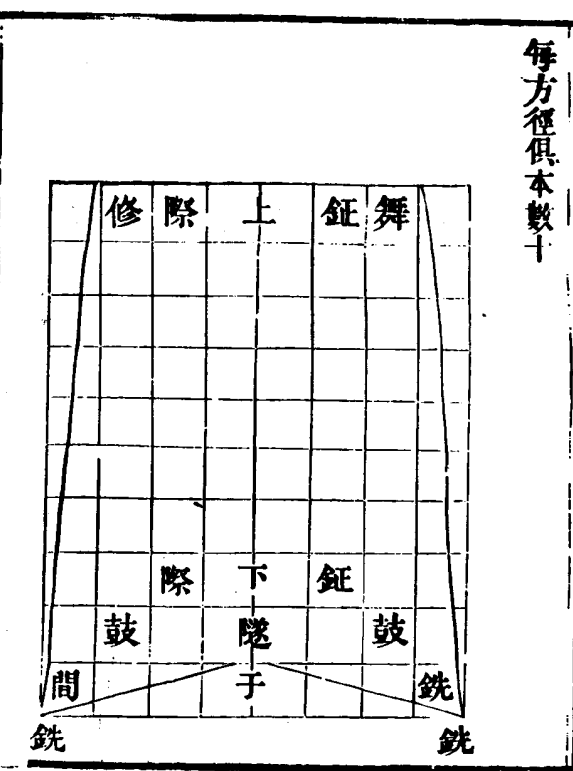 每方徑俱本數十
舞鉦上際修
鉦下際
鼓隧鼓
銑于間
銑銑